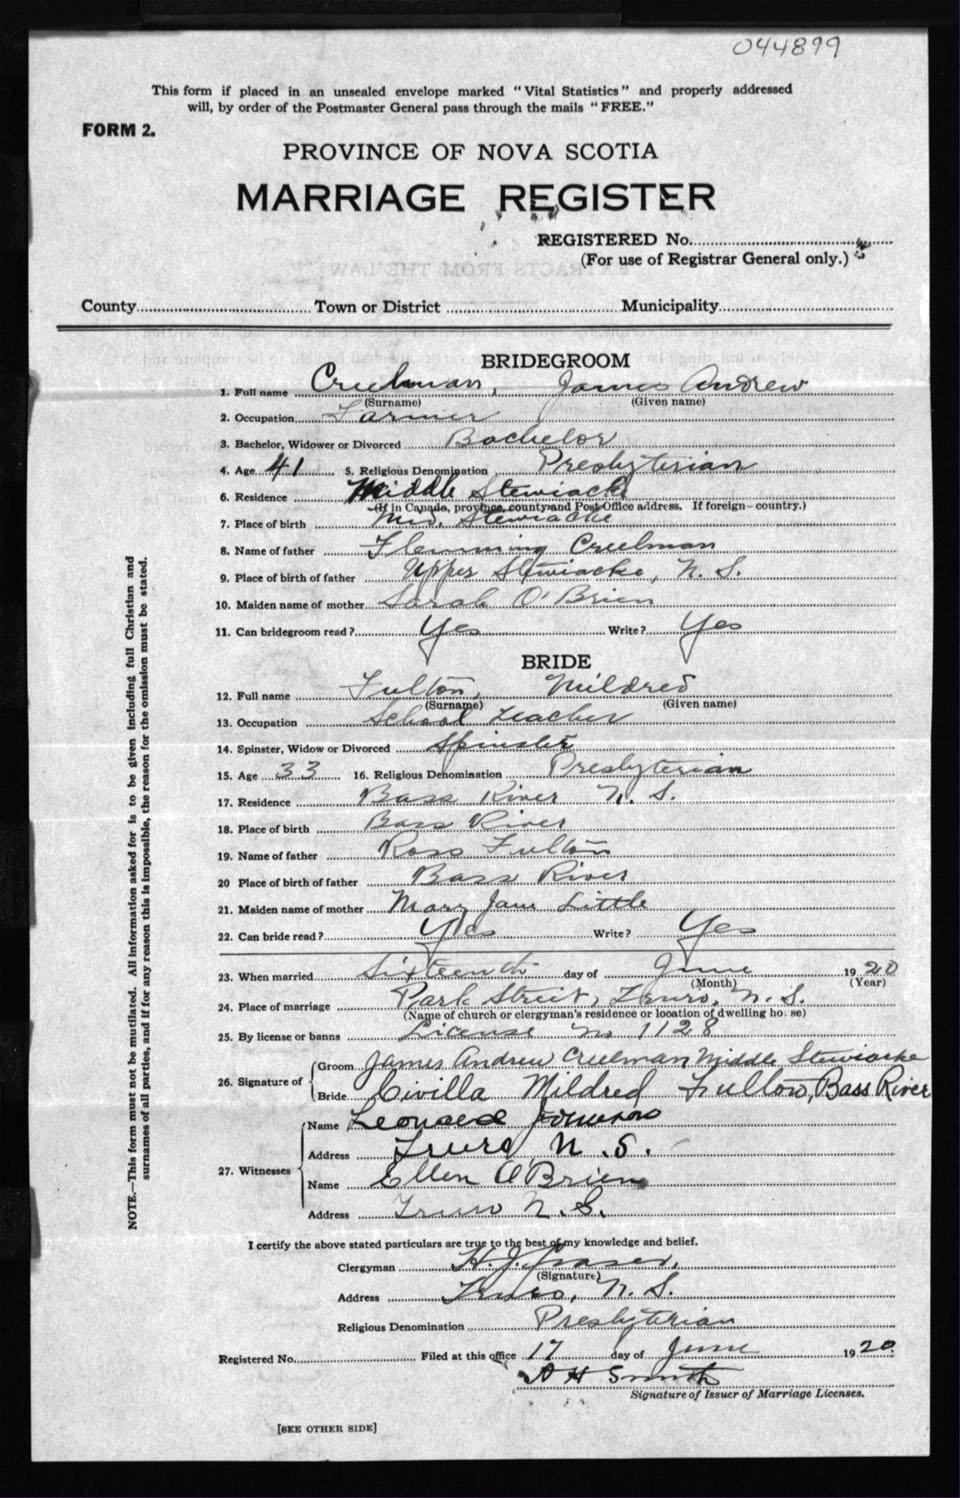 044899
This form if placed in an unsealed envelope marked "Vital Statistics" and properly addressed
will, by order of the Postmaster General pass through the mails "FREE."
FORM 2.
PROVINCE OF NOVA SCOTIA
MARRIAGE REGISTER
REGISTERED No.
(For use of Registrar General only.)
County Town or District Municipality
BRIDEGROOM
1. Full name Creelman, James Andrew
(Surname) (Given name)
2. Occupation Farmer
3. Bachelor, Widower or Divorced Bachelor
4. Age 41 5. Religious Denomination Presbyterian
6. Residence Middle Stewiacke
(If in Canada, province, county and Post Office address. If foreign—country.)
7. Place of birth Mid. Stewiacke
8. Name of father Flemming Creelman
9. Place of birth of father Upper Stewiacke, N. S.
10. Maiden name of mother Sarah O'Brien
11. Can bridegroom read? Yes Write? Yes
BRIDE
12. Full name Fulton, Mildred
(Surname) (Given name)
13. Occupation School Teacher
14. Spinster, Widow or Divorced Spinster
15. Age 33 16. Religious Denomination Presbyterian
17. Residence Bass River N. S.
18. Place of birth Bass River
19. Name of father Ross Fulton
20 Place of birth of father Bass River
21. Maiden name of mother Mary Jane Little
22. Can bride read? Yes Write? Yes
23. When married Sixteenth day of June 1920
(Month) (Year)
24. Place of marriage Park Street, Truro, N. S.
(Name of church or clergyman's residence or location of dwelling house)
25. By license or banns License No 1128
26. Signature of Groom James Andrew Creelman, Middle Stewiacke
Bride Civilla Mildred Fulton, Bass River
27. Witnesses Name Leonard
Address Truro, N. S.
Name Ellen O'Brien
Address Truro N. S.
I certify the above stated particulars are true to the best of my knowledge and belief.
Clergyman H. J. Fraser,
(Signature)
Address Truro, N. S.
Religious Denomination Presbyterian
Registered No. Filed at this office 17 day of June 1920.
A H Smith
Signature of Issuer of Marriage Licenses.
[SEE OTHER SIDE]
NOTE.—This form must not be mutilated. All information asked for is to be given including full Christian and
surnames of all parties, and if for any reason this is impossible, the reason for the omission must be stated.